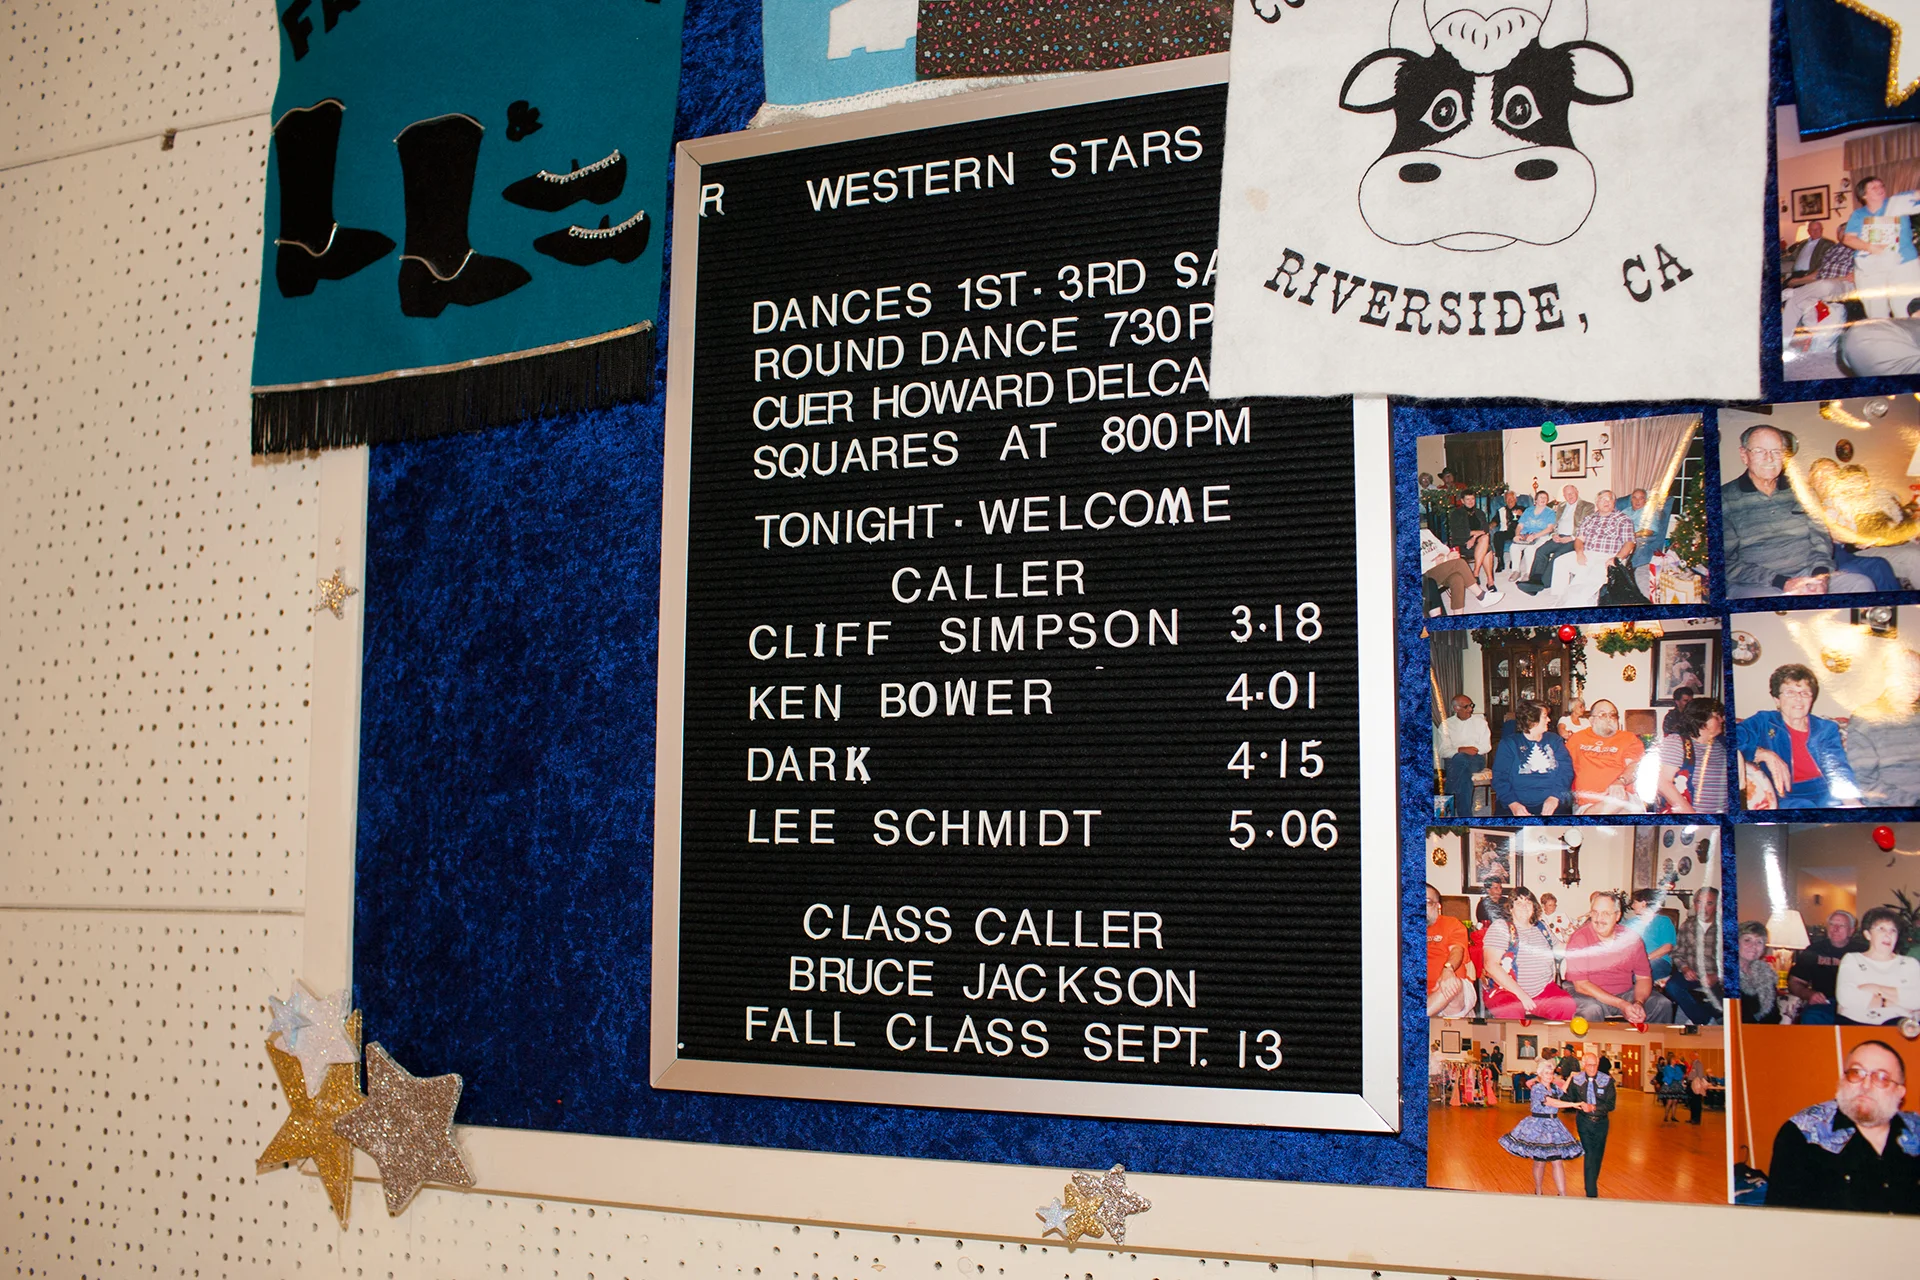 &
R WESTERN STARS
DANCES 1ST · 3RD
ROUND DANCE 730P
CUER HOWARD
SQUARES AT 800PM
TONIGHT · WELCOME
CALLER
CLIFF SIMPSON 3·18
KEN BOWER 4·01
DARK 4·15
LEE SCHMIDT 5·06
CLASS CALLER
BRUCE JACKSON
FALL CLASS SEPT. 13
RIVERSIDE, CA